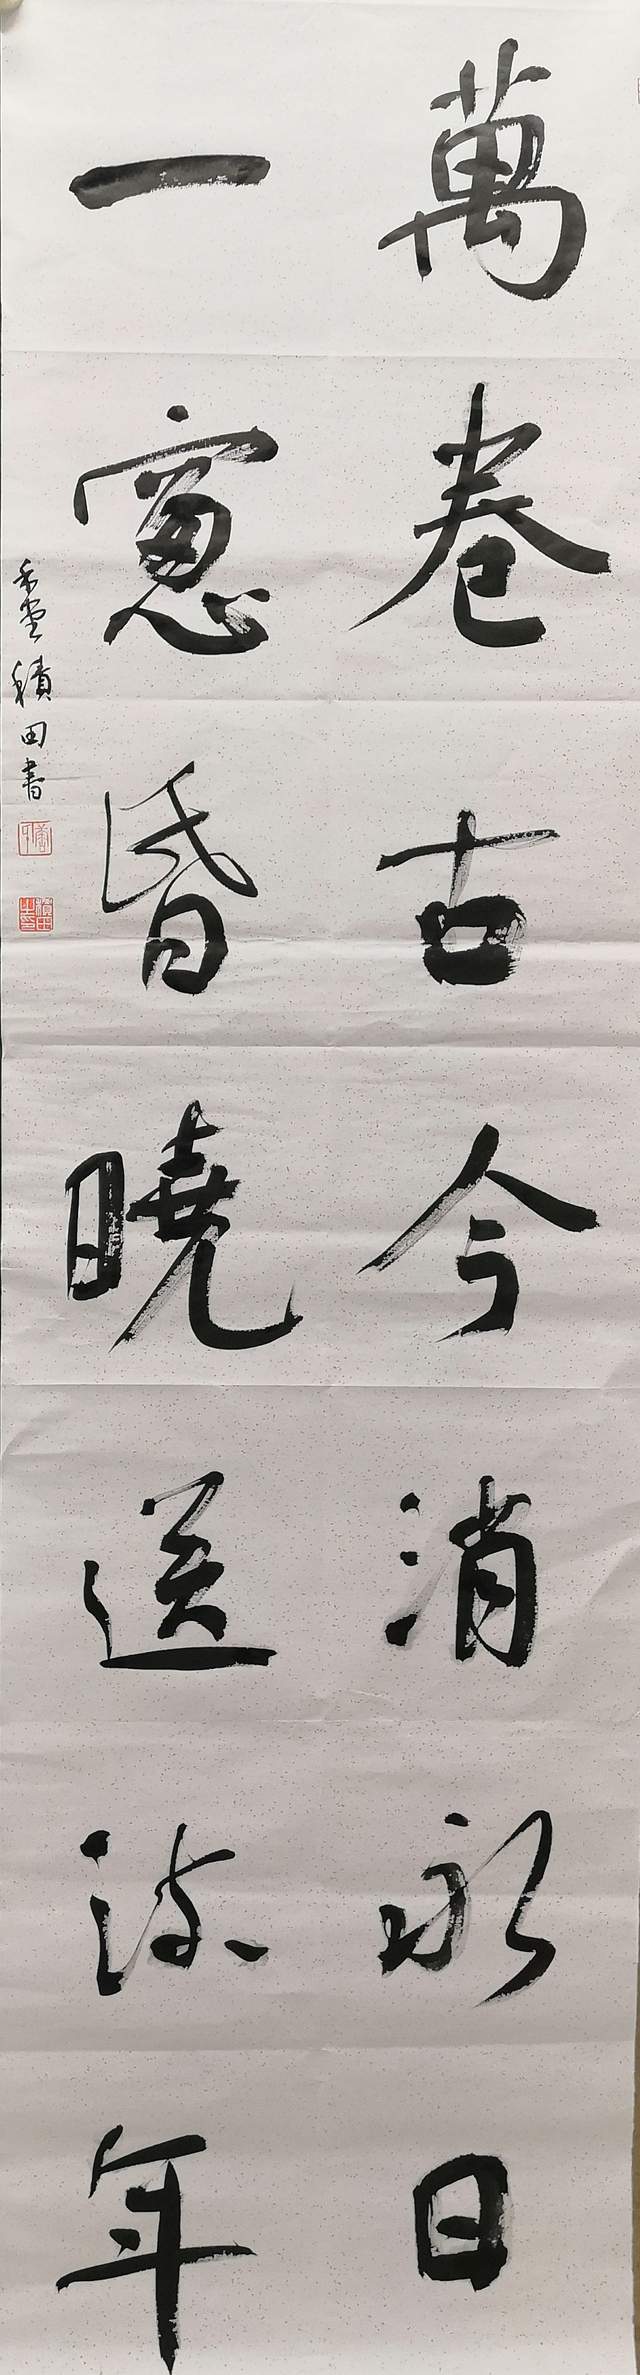 萬卷古今消永日
一窻昏曉送流年
積田書